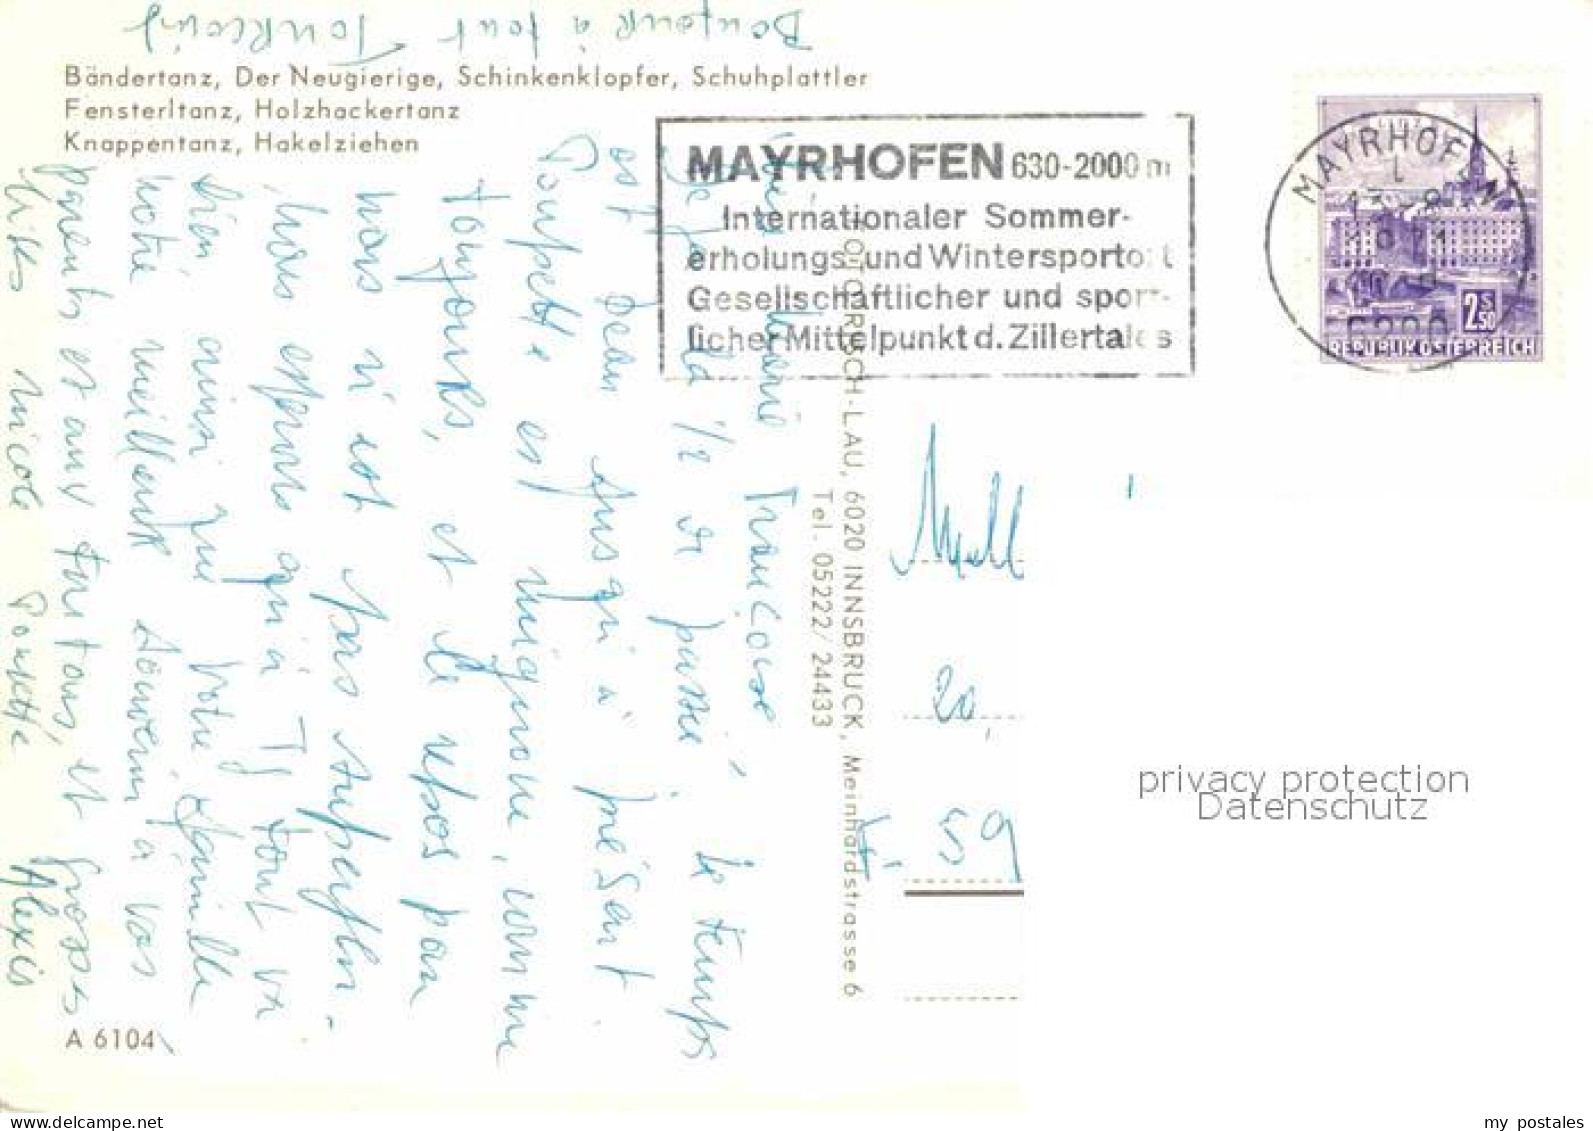 Bonjour à tout Tourcoing
Bändertanz, Der Neugierige, Schinkenklopfer, Schuhplattler
Fensterltanz, Holzhackertanz
Knappentanz, Hakelziehen
MAYRHOFEN 630-2000 m
Internationaler Sommer-
erholungs- und Wintersportort
Gesellschaftlicher und sport-
licher Mittelpunkt d. Zillertales
MAYRHOFEN
2 S 50
REPUBLIK ÖSTERREICH
FOTO RISCH-LAU, 6020 INNSBRUCK, Meinhardstrasse 6
Tel. 05222/24433
Françoise,
1/2 passé le temps
est beau jusqu'à présent
Poupette est mignonne, comme
toujours, et le repos pour
nous n'est pas superflu.
nous espérons qu'à tout va
bien, ainsi que votre famille
notre meilleur souvenir à vos
parents et aux et grosses
bises nicole Poupette Alexis
Mell
20,
59
A 6104
privacy protection
Datenschutz
my postales